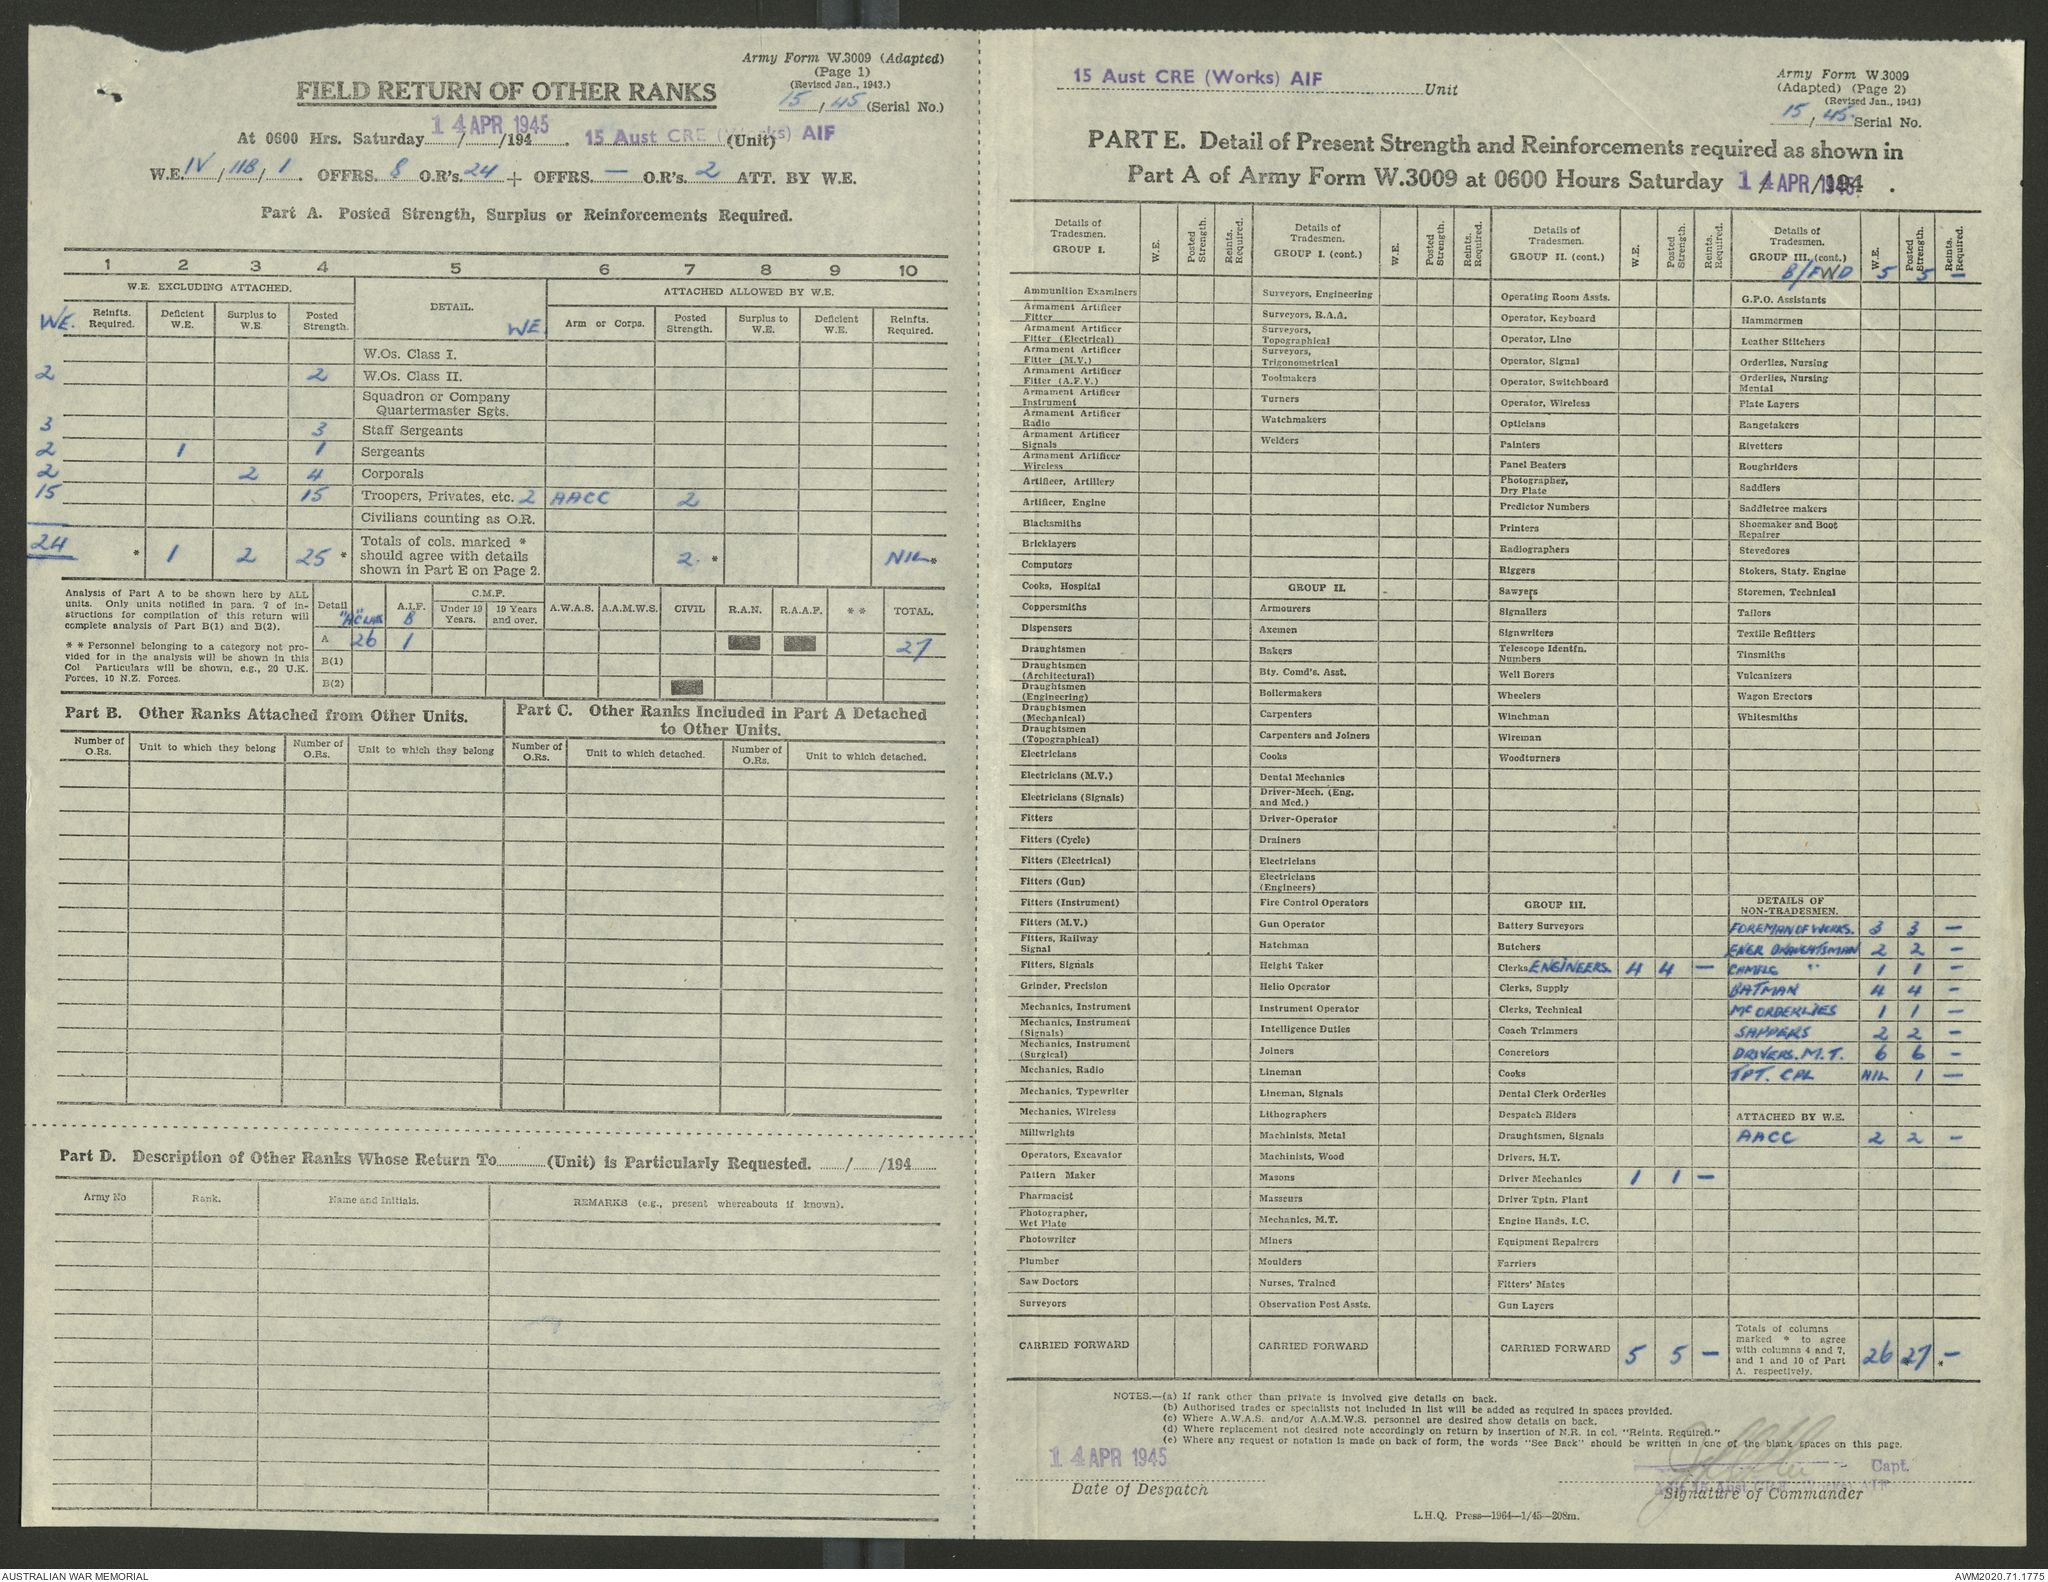 Army Form W.3009 (Adapted)
(Page 1)
(Revised Jan., 1943.)
FIELD RETURN OF OTHER RANKS
15 / 45 (Serial No.)
At 0600 Hrs. Saturday 14 APR 1945 / /194 . 15 Aust CRE (Works) AIF (Unit)
W.E. IV / 11B / 1 . OFFRS. 8 O.R's. 24 + OFFRS. — O.R's. 2 ATT. BY W.E.
Part A. Posted Strength, Surplus or Reinforcements Required.
1 2 3 4 5 6 7 8 9 10
W.E. EXCLUDING ATTACHED. DETAIL. ATTACHED ALLOWED BY W.E.
WE. Reinfts. Required. Deficient W.E. Surplus to W.E. Posted Strength. WE. Arm or Corps. Posted Strength. Surplus to W.E. Deficient W.E. Reinfts. Required.
W.Os. Class I.
2 2 W.Os. Class II.
Squadron or Company
Quartermaster Sgts.
3 3 Staff Sergeants
2 1 1 Sergeants
2 2 4 Corporals
15 15 Troopers, Privates, etc. 2 AACC 2
Civilians counting as O.R.
24 * 1 2 25 * Totals of cols. marked * should agree with details shown in Part E on Page 2. 2 * NIL *
Analysis of Part A to be shown here by ALL
units. Only units notified in para. 7 of in-
structions for compilation of this return will
complete analysis of Part B(1) and B(2).
* * Personnel belonging to a category not pro-
vided for in the analysis will be shown in this
Col. Particulars will be shown, e.g., 20 U.K.
Forces, 10 N.Z. Forces.
Detail A.I.F. C.M.F. Under 19 Years. 19 Years and over. A.W.A.S. A.A.M.W.S. CIVIL R.A.N. R.A.A.F. * * TOTAL.
B
A 26 1 27
B(1)
B(2)
Part B. Other Ranks Attached from Other Units.
Number of O.Rs. Unit to which they belong Number of O.Rs. Unit to which they belong
Part C. Other Ranks Included in Part A Detached
to Other Units.
Number of O.Rs. Unit to which detached. Number of O.Rs. Unit to which detached.
Part D. Description of Other Ranks Whose Return To (Unit) is Particularly Requested. / /194
Army No Rank. Name and Initials. REMARKS (e.g., present whereabouts if known).
15 Aust CRE (Works) AIF Unit
Army Form W.3009
(Adapted) (Page 2)
(Revised Jan., 1943)
15 / 45 Serial No.
PART E. Detail of Present Strength and Reinforcements required as shown in
Part A of Army Form W.3009 at 0600 Hours Saturday 14 APR 1945 / /194 .
Details of Tradesmen. GROUP I. W.E. Posted Strength. Reints. Required.
Ammunition Examiners
Armament Artificer Fitter
Armament Artificer Fitter (Electrical)
Armament Artificer Fitter (M.V.)
Armament Artificer Fitter (A.F.V.)
Armament Artificer Instrument
Armament Artificer Radio
Armament Artificer Signals
Armament Artificer Wireless
Artificer, Artillery
Artificer, Engine
Blacksmiths
Bricklayers
Computors
Cooks, Hospital
Coppersmiths
Dispensers
Draughtsmen
Draughtsmen (Architectural)
Draughtsmen (Engineering)
Draughtsmen (Mechanical)
Draughtsmen (Topographical)
Electricians
Electricians (M.V.)
Electricians (Signals)
Fitters
Fitters (Cycle)
Fitters (Electrical)
Fitters (Gun)
Fitters (Instrument)
Fitters (M.V.)
Fitters, Railway Signal
Fitters, Signals
Grinder, Precision
Mechanics, Instrument
Mechanics, Instrument (Signals)
Mechanics, Instrument (Surgical)
Mechanics, Radio
Mechanics, Typewriter
Mechanics, Wireless
Millwrights
Operators, Excavator
Pattern Maker
Pharmacist
Photographer, Wet Plate
Photowriter
Plumber
Saw Doctors
Surveyors
CARRIED FORWARD
Details of Tradesmen. GROUP I. (cont.) W.E. Posted Strength. Reints. Required.
Surveyors, Engineering
Surveyors, R.A.A.
Surveyors, Topographical
Surveyors, Trigonometrical
Toolmakers
Turners
Watchmakers
Welders
GROUP II.
Armourers
Axemen
Bakers
Bty. Comd's. Asst.
Boilermakers
Carpenters
Carpenters and Joiners
Cooks
Dental Mechanics
Driver-Mech. (Eng. and Med.)
Driver-Operator
Drainers
Electricians
Electricians (Engineers)
Fire Control Operators
Gun Operator
Hatchman
Height Taker
Helio Operator
Instrument Operator
Intelligence Duties
Joiners
Lineman
Lineman, Signals
Lithographers
Machinists, Metal
Machinists, Wood
Masons
Masseurs
Mechanics, M.T.
Miners
Moulders
Nurses, Trained
Observation Post Assts.
CARRIED FORWARD
Details of Tradesmen. GROUP II. (cont.) W.E. Posted Strength. Reints. Required.
Operating Room Assts.
Operator, Keyboard
Operator, Line
Operator, Signal
Operator, Switchboard
Operator, Wireless
Opticians
Painters
Panel Beaters
Photographer, Dry Plate
Predictor Numbers
Printers
Radiographers
Riggers
Sawyers
Signallers
Signwriters
Telescope Identfn. Numbers
Well Borers
Wheelers
Winchman
Wireman
Woodturners
GROUP III.
Battery Surveyors
Butchers
Clerks ENGINEERS. 4 4 —
Clerks, Supply
Clerks, Technical
Coach Trimmers
Concretors
Cooks
Dental Clerk Orderlies
Despatch Riders
Draughtsmen, Signals
Drivers, H.T.
Driver Mechanics 1 1 —
Driver Tptn. Plant
Engine Hands, I.C.
Equipment Repairers
Farriers
Fitters' Mates
Gun Layers
CARRIED FORWARD 5 5 —
Details of Tradesmen. GROUP III. (cont.) W.E. Posted Strength. Reints. Required.
B/FWD 5 5 —
G.P.O. Assistants
Hammermen
Leather Stitchers
Orderlies, Nursing
Orderlies, Nursing Mental
Plate Layers
Rangetakers
Rivetters
Roughriders
Saddlers
Saddletree makers
Shoemaker and Boot Repairer
Stevedores
Stokers, Staty. Engine
Storemen, Technical
Tailors
Textile Refitters
Tinsmiths
Vulcanizers
Wagon Erectors
Whitesmiths
DETAILS OF NON-TRADESMEN.
FOREMAN OF WORKS. 3 3 —
ENGR DRAUGHTSMAN 2 2 —
" 1 1 —
BATMAN 4 4 —
MC ORDERLIES 1 1 —
SAPPERS 2 2 —
DRIVERS. M.T. 6 6 —
TPT. CPL NIL 1 —
ATTACHED BY W.E.
AACC 2 2 —
Totals of columns marked * to agree with columns 4 and 7, and 1 and 10 of Part A. respectively. 26 27 * —
NOTES.—(a) If rank other than private is involved give details on back.
(b) Authorised trades or specialists not included in list will be added as required in spaces provided.
(c) Where A.W.A.S. and/or A.A.M.W.S. personnel are desired show details on back.
(d) Where replacement not desired note accordingly on return by insertion of N.R. in col. "Reints. Required."
(e) Where any request or notation is made on back of form, the words "See Back" should be written in one of the blank spaces on this page.
14 APR 1945
Date of Despatch
Capt.
Signature of Commander
L.H.Q. Press—1964—1/45—208m.
AUSTRALIAN WAR MEMORIAL
AWM2020.71.1775